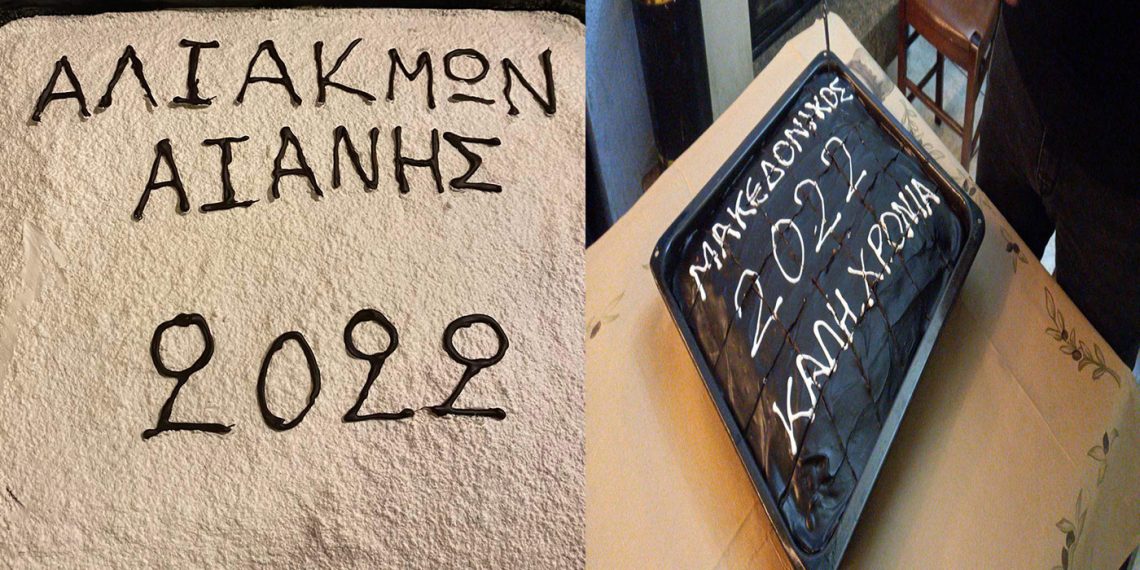 ΑΛΙΑΚΜΩΝ
ΑΙΑΝΗΣ
2022
ΜΑΚΕΔΟΝΙΚΟΣ
2022
ΚΑΛΗ ΧΡΟΝΙΑ